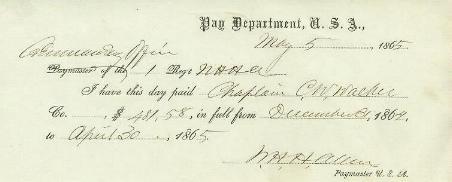 Pay Department, U. S. A.,
May 5 1865
Commanding Officer
Paymaster of the 1 Regt N H H A
I have this day paid Chaplain C. W. Walker
Co. $ 481.58, in full from December 31, 1864,
to April 30, 1865.
W. H. H. Allen
Paymaster U. S. A.